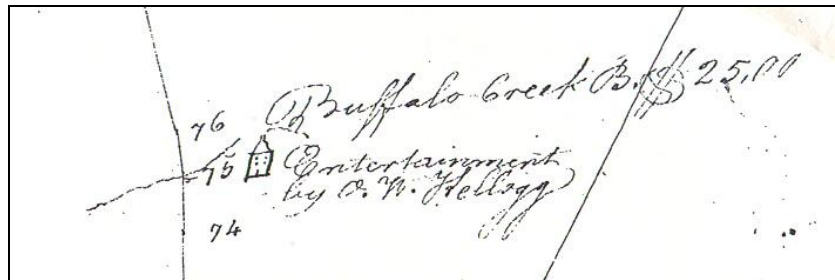 Buffalo Creek B. $ 25.00
76
75 Entertainment
by O. W. Kellogg
74